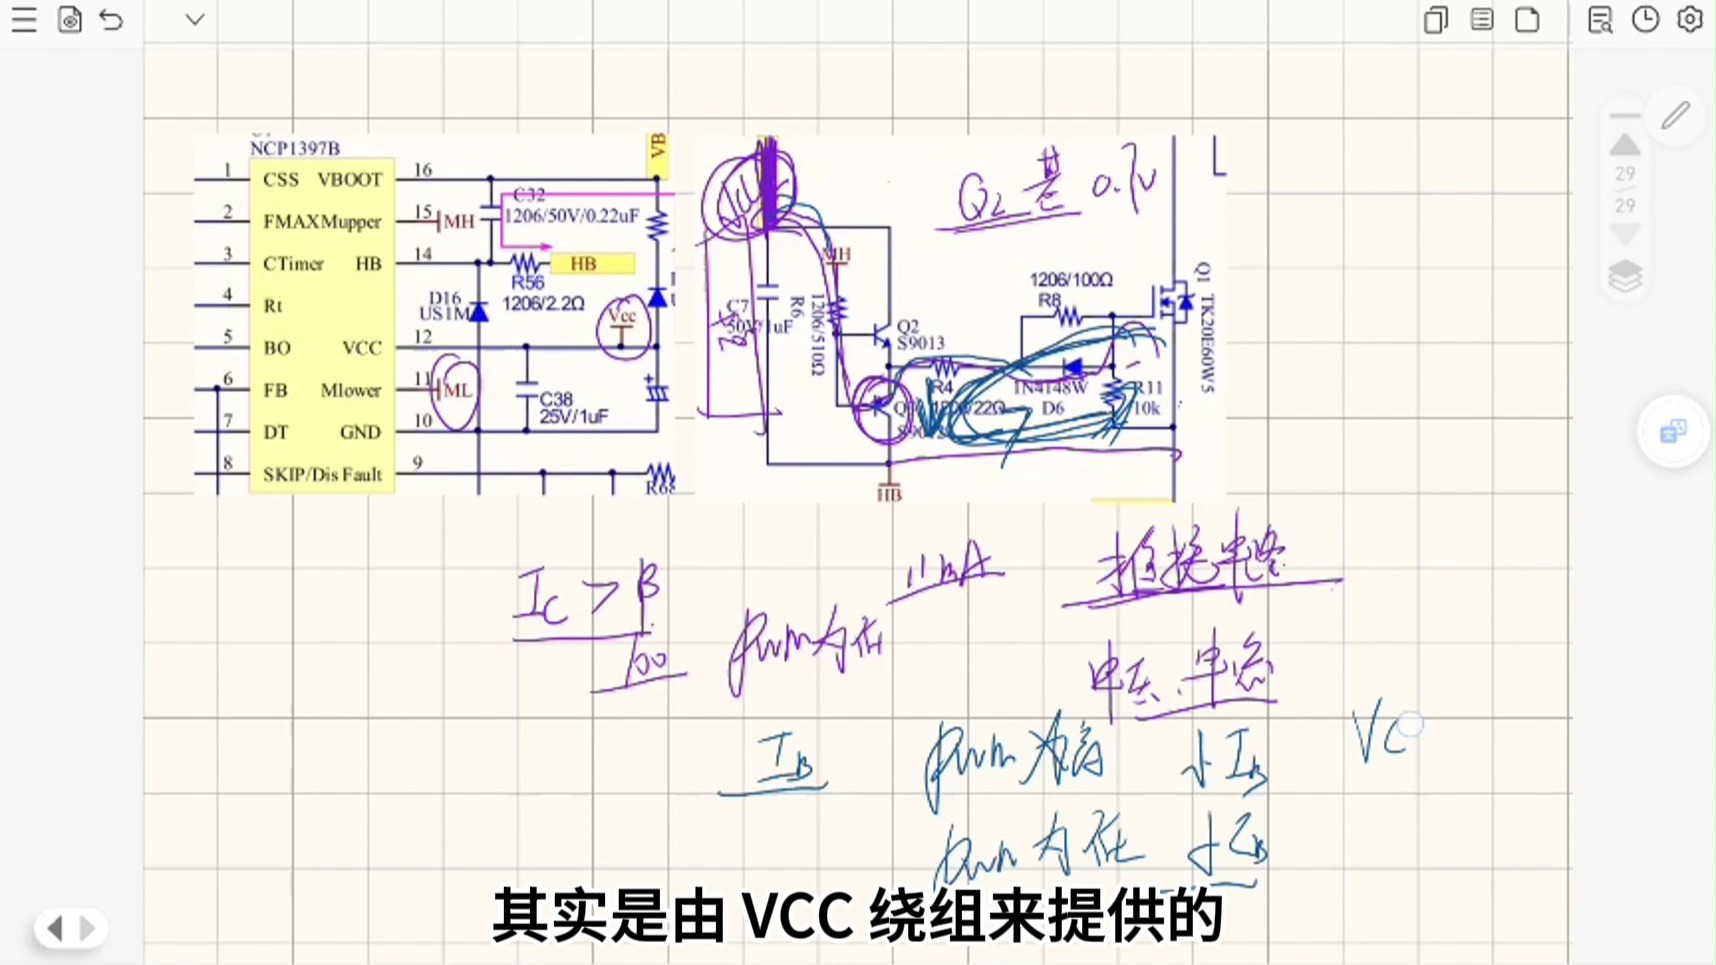 NCP1397B
1 CSS VBOOT 16
2 FMAX Mupper 15 MH
3 CTimer HB 14
4 Rt
5 BO VCC 12
6 FB Mlower 11 ML
7 DT GND 10
8 SKIP/Dis Fault 9
VB
C32
1206/50V/0.22uF
HB
R56
1206/2.2Ω
D16
US1M
Vcc
C38
25V/1uF
MH
C7
50V/1uF
R6
1206/510Ω
Q2
S9013
R4
HB
1206/100Ω
R8
1N4148W
D6
R11
10k
Q1 TK20E60W5
Q2 基 0.7V
IC > β
100
pwm为低
11mA
推挽电路
电压、电流
IB
pwm 为高 IB
pwm 为低 IB
VC
29
29
其实是由 VCC 绕组来提供的